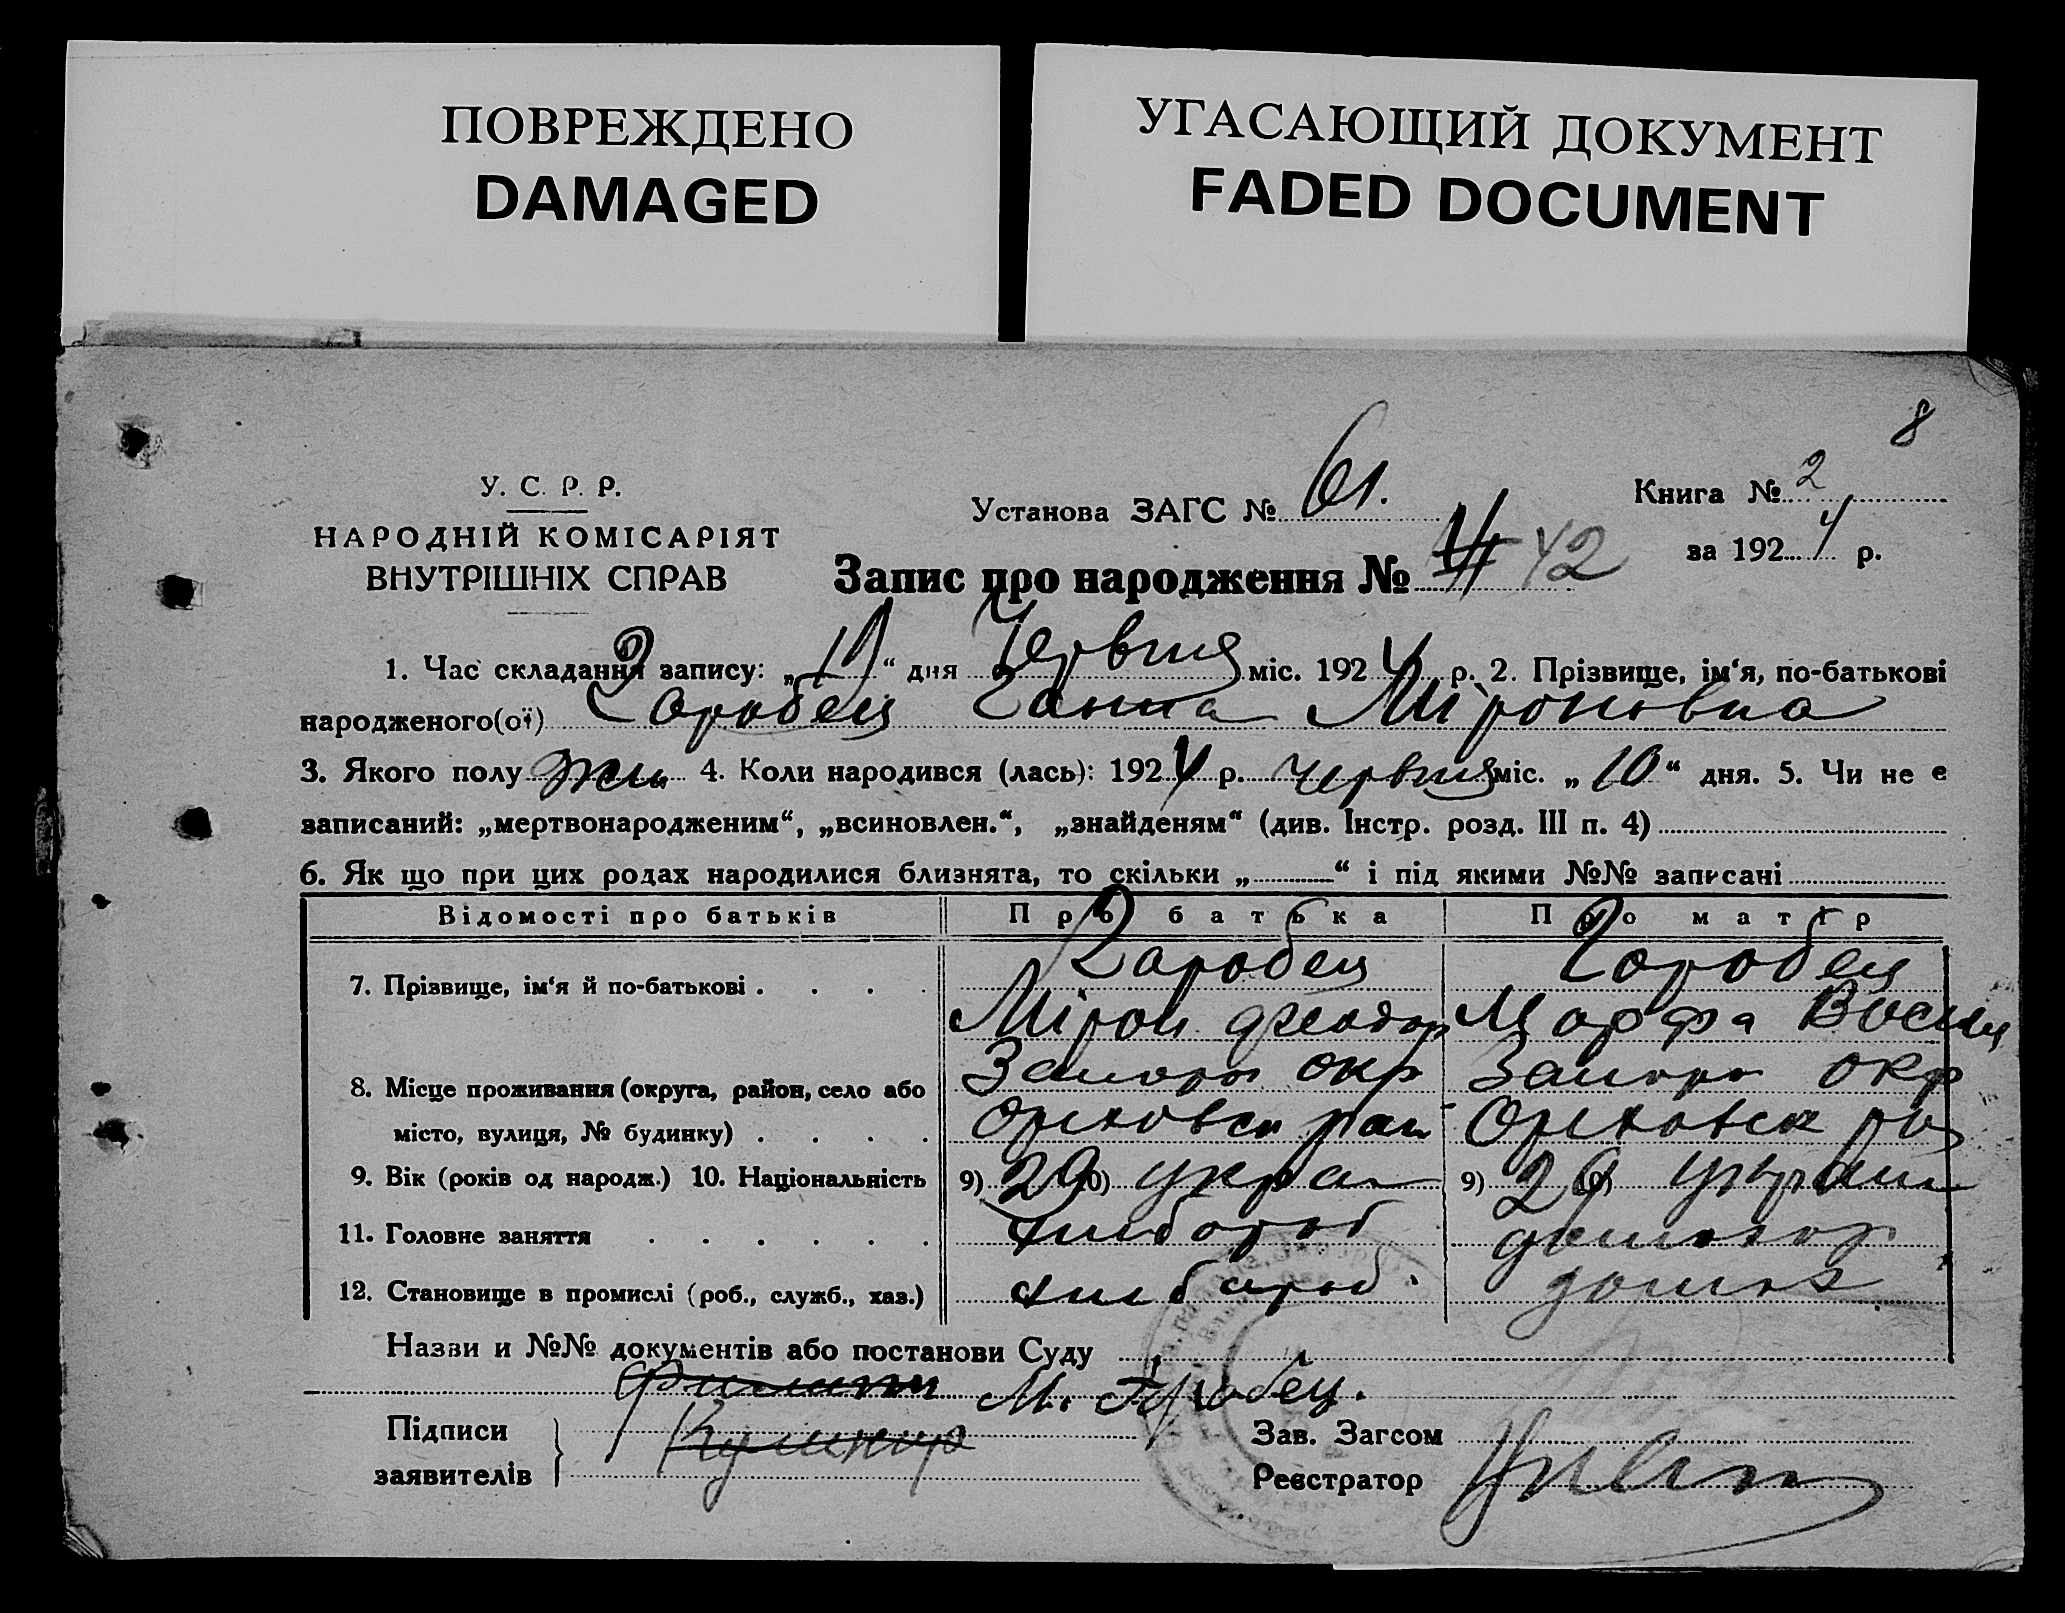 ПОВРЕЖДЕНО
DAMAGED
УГАСАЮЩИЙ ДОКУМЕНТ
FADED DOCUMENT
8
У. С. Р. Р.
НАРОДНІЙ КОМІСАРІЯТ
ВНУТРІШНІХ СПРАВ
Установа ЗАГС № 61.
Книга № 2
за 1924 р.
Запис про народження № 42
1. Час складання запису: „19“ дня Червня міс. 1924 р. 2. Прізвище, ім‘я, по-батькові
народженого(ої) Горобец Ганна Міроновна
3. Якого полу жін 4. Коли народився (лась): 1924 р. червня міс. „10“ дня. 5. Чи не є
записаний: „мертвонародженим“, „всиновлен.“, „знайденям“ (див. Інстр. розд. III п. 4)
6. Як що при цих родах народилися близнята, то скільки „ “ і під якими №№ записані
Відомості про батьків Про батька Про матір
7. Прізвище, ім‘я й по-батькові . . . . Горобец Горобец
Мірон Феодор Марфа Васил
8. Місце проживання (округа, район, село або Запор окр Запор окр
місто, вулиця, № будинку) . . . . Ореховск рай Ореховск ра
9. Вік (років од народж.) 10. Національність 9) 29 10) украин 9) 29 10) украин
11. Головне заняття . . . . . . хлібороб домохоз
12. Становище в промислі (роб., служб., хаз.) хлібороб домохоз
Назви и №№ документів або постанови Суду
М. Горобец.
Підписи
заявителів
Зав. Загсом
Реєстратор